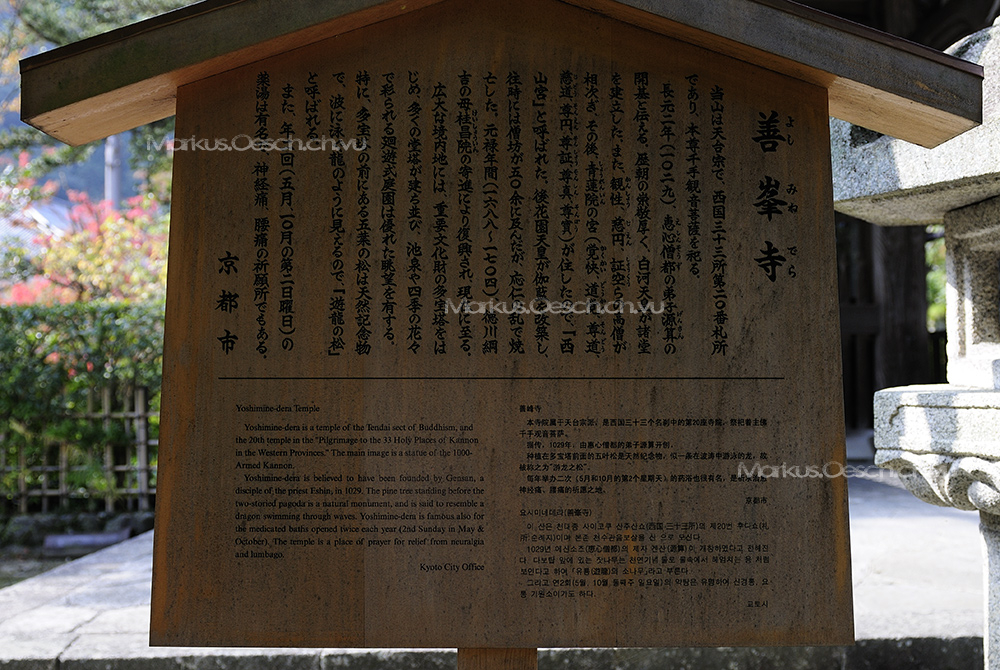 善峯寺
よしみねでら
当山は天台宗で、西国三十三所第二〇番札所
であり、本尊千手観音菩薩を祀る。
長元二年(一〇二九)、恵心僧都の弟子源算の
開基と伝える。歴朝の崇敬厚く、白河天皇が諸堂
を建立した。また、観性、慈円、証空ら高僧が
相次ぎ、その後、青蓮院の宮(覚快、道覚、尊道、
慈道、尊円、尊証、尊真、尊賞)が住したので、「西
山宮」と呼ばれた。後花園天皇が伽藍を改築し、
往時には僧坊が五〇余に及んだが、応仁の乱で焼
亡した。元禄年間(一六八八〜一七〇四)徳川綱
吉の母桂昌院の寄進により復興され、現在に至る。
広大な境内地には、重要文化財の多宝塔をは
じめ、多くの堂塔が建ち並び、池泉や四季の花々
で彩られる廻遊式庭園は優れた眺望を有する。
特に、多宝塔の前にある五葉の松は天然記念物
で、波に泳ぐ龍のように見えるので、「遊龍の松」
と呼ばれる。
また、年二回(五月、一〇月の第二日曜日)の
薬湯は有名で、神経痛、腰痛の祈願所でもある。
京都市
Yoshimine-dera Temple
Yoshimine-dera is a temple of the Tendai sect of Buddhism, and
the 20th temple in the "Pilgrimage to the 33 Holy Places of Kannon
in the Western Provinces." The main image is a statue of the 1000-
Armed Kannon.
Yoshimine-dera is believed to have been founded by Gensan, a
disciple of the priest Eshin, in 1029. The pine tree standing before the
two-storied pagoda is a natural monument, and is said to resemble a
dragon swimming through waves. Yoshimine-dera is famous also for
the medicated baths opened twice each year (2nd Sunday in May &
October). The temple is a place of prayer for relief from neuralgia
and lumbago.
Kyoto City Office
善峰寺
本寺院属于天台宗派,是西国三十三个名刹中的第20座寺院。祭祀着主佛
千手观音菩萨。
据传,1029年,由惠心僧都的弟子源算开创。
种植在多宝塔前面的五叶松是天然纪念物,似一条在波涛中游泳的龙,故
被称之为“游龙之松”。
每年举办二次(5月和10月的第2个星期天)的药浴也很有名,是
神经痛、腰痛的祈愿之地。
京都市
요시미네데라(善峯寺)
이 산은 천태종 사이코쿠 산주산쇼(西国 三十三所)의 제20번 후다쇼(札
所:순례지)이며 본존 천수관음보살을 신으로 모신다.
1029년 에신소즈(恵心僧都)의 제자 겐산(源算)이 개창하였다고 전해진
다. 다보탑 앞에 있는 잣나무는 천연기념물로 물속에서 헤엄치는 용처럼
보인다고 하여 「유룡(遊龍)의 소나무」라고 부른다.
그리고 연2회(5월, 10월 둘째주 일요일)의 약탕은 유명하며 신경통, 요
통 기원소이기도 하다.
교토시
Markus.Oesch.ch.vu
Markus.Oesch.ch.vu
Markus.Oesch.ch.vu